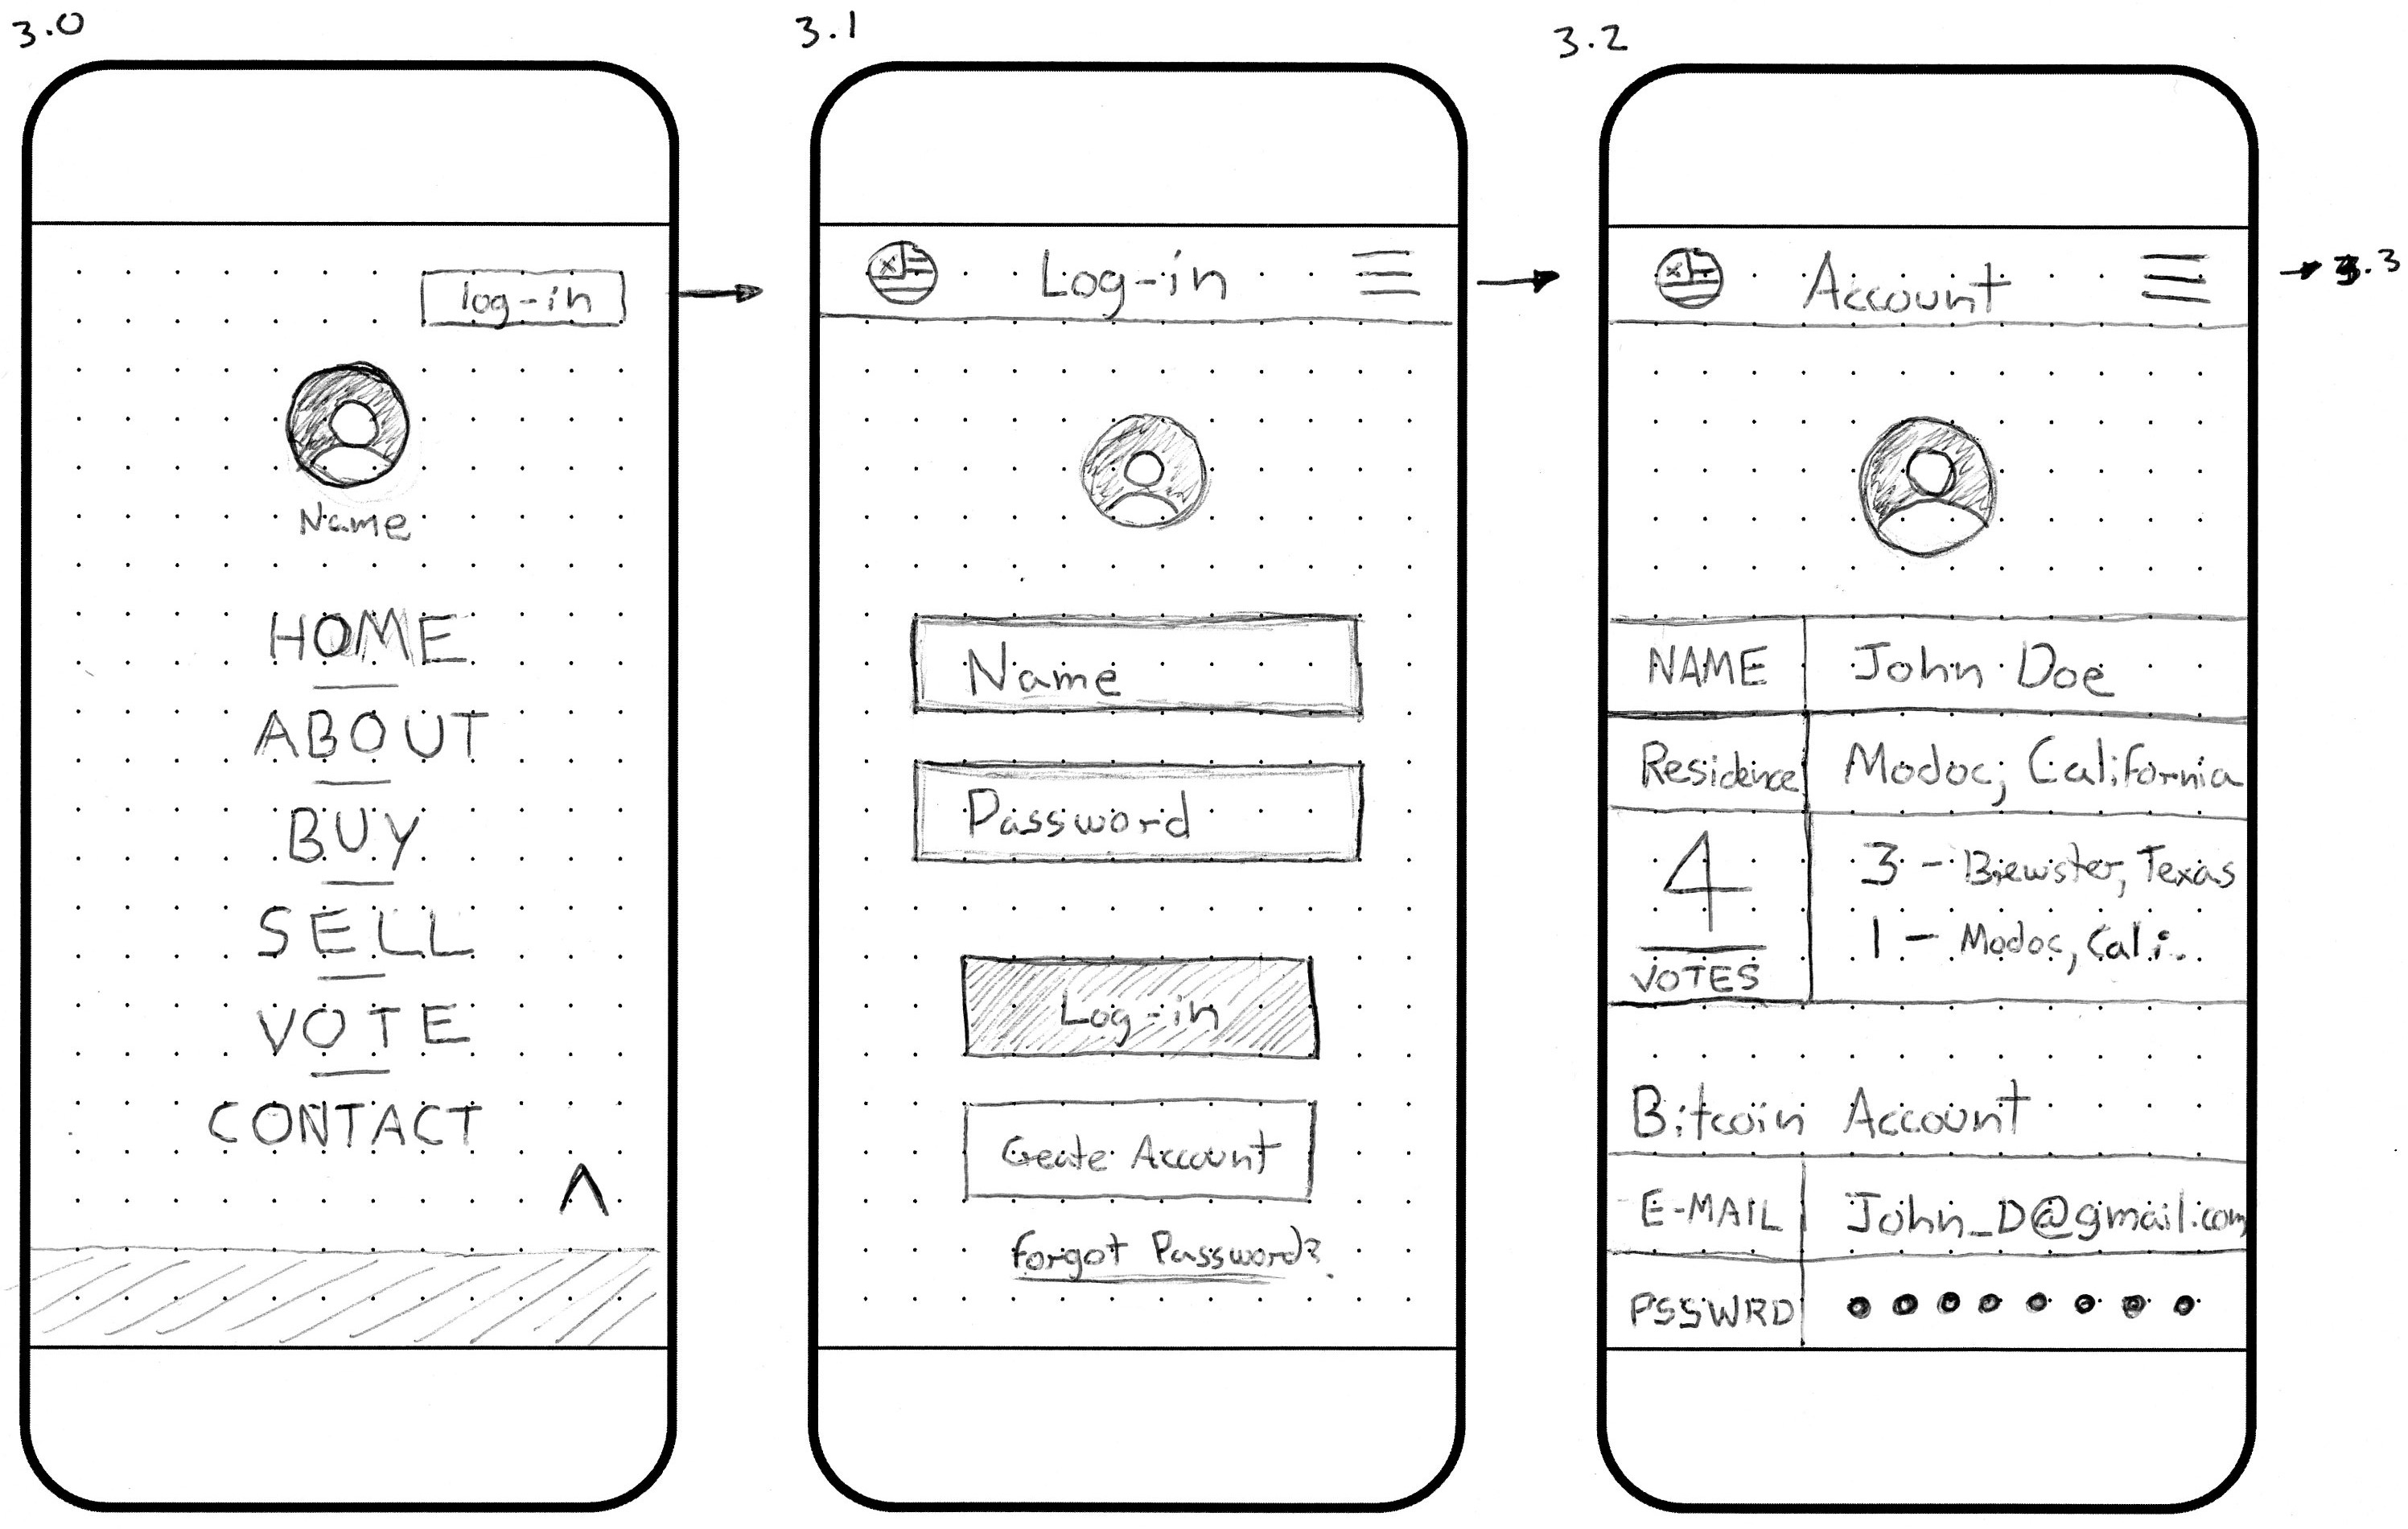 3.0
log-in
Name
HOME
ABOUT
BUY
SELL
VOTE
CONTACT
3.1
Log-in
Name
Password
Log-in
Create Account
forgot Password?
3.2
Account
3.3
NAME John Doe
Residence Modoc, California
4 VOTES
3 - Brewster, Texas
1 - Modoc, Cali.
Bitcoin Account
E-MAIL John_D@gmail.com
PSSWRD ● ● ● ● ● ● ● ●